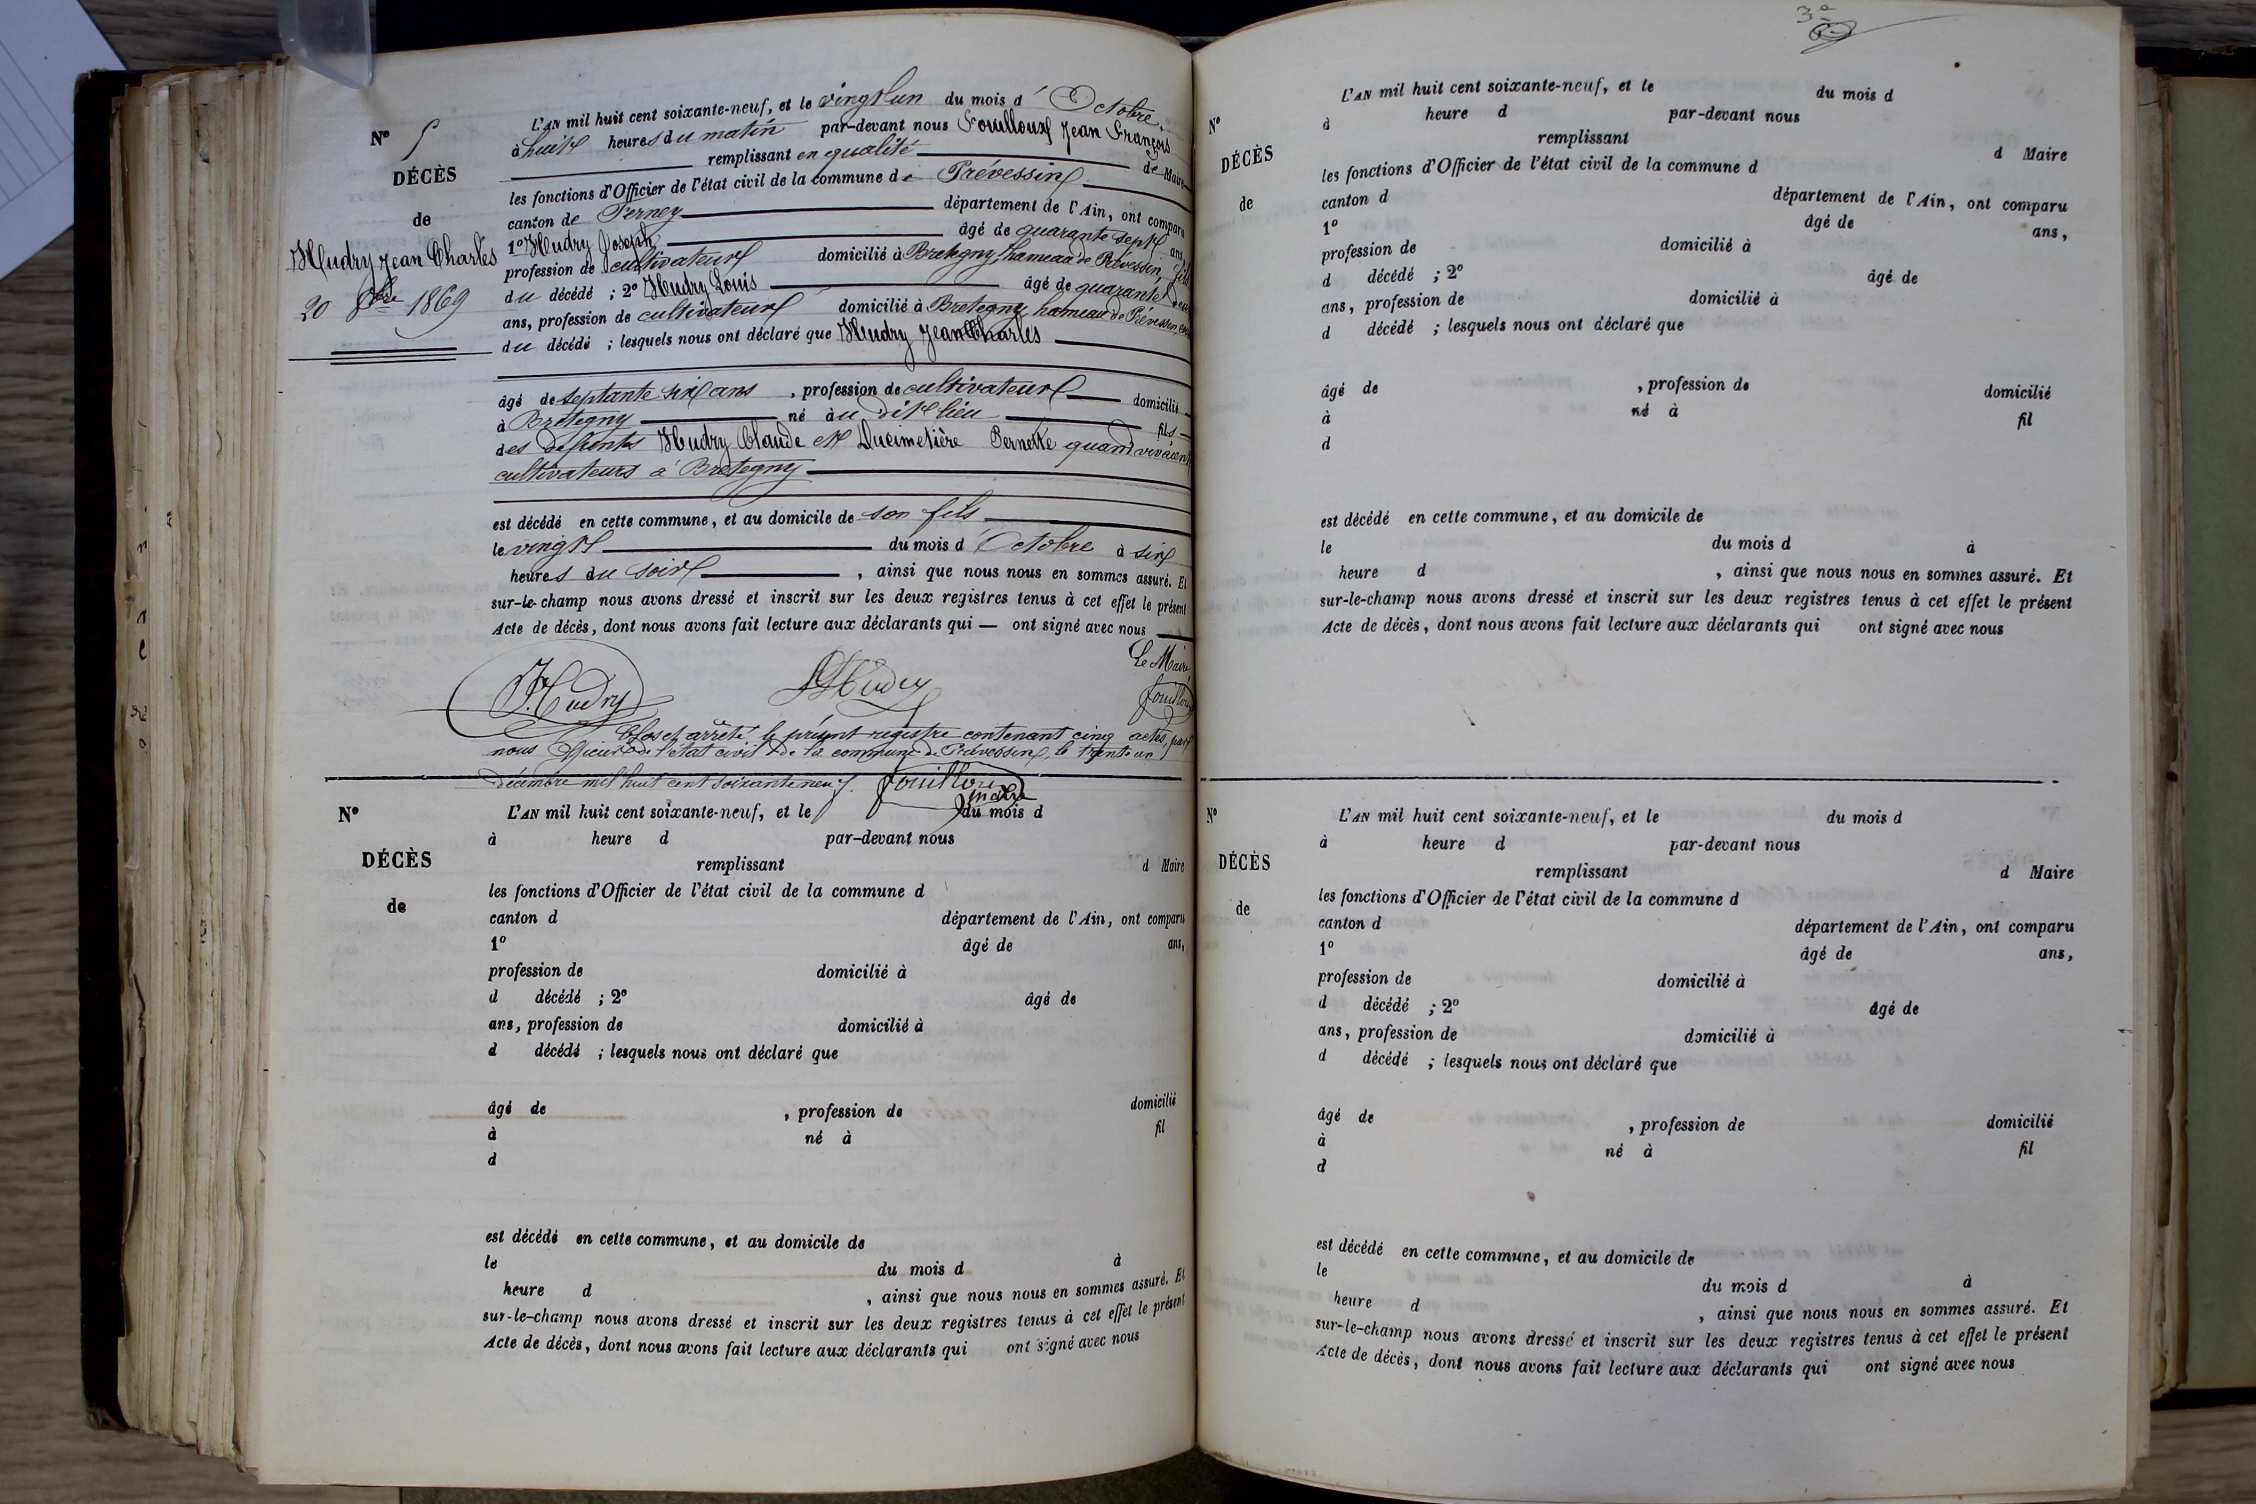 N° 5
DÉCÈS
de
Hudry Jean Charles
20 8bre 1869
L'AN mil huit cent soixante-neuf, et le vingt un du mois d' Octobre,
à huit heures du matin par-devant nous Fouilloux Jean François
remplissant en qualité de Maire
les fonctions d'Officier de l'état civil de la commune de Prévessin
canton de Ferney département de l'Ain, ont comparu
1° Hudry Joseph âgé de quarante sept ans,
profession de cultivateur domicilié à Bretegny, hameau de Prévessin, fils
du décédé ; 2° Hudry Louis âgé de quarante deux
ans, profession de cultivateur domicilié à Bretegny hameau de Prévessin,
du décédé ; lesquels nous ont déclaré que Hudry Jean Charles
âgé de septante six ans , profession de cultivateur domicilié
à Bretegny né au dit lieu fils
des défunts Hudry Claude et Ducimetière Pernette quand vivaient
cultivateurs à Bretegny
est décédé en cette commune, et au domicile de son fils
le vingt du mois d' Octobre à six
heures du soir , ainsi que nous nous en sommes assuré. Et
sur-le-champ nous avons dressé et inscrit sur les deux registres tenus à cet effet le présent
Acte de décès, dont nous avons fait lecture aux déclarants qui — ont signé avec nous
Le Maire
J. Hudry L Hudry Fouilloux
Clos et arrêté le présent registre contenant cinq actes, par
nous Officier de l'état civil de la commune de Prévessin, le trente un
décembre mil huit cent soixante neuf. Fouilloux
maire
N°
DÉCÈS
de
L'AN mil huit cent soixante-neuf, et le du mois d
à heure d par-devant nous
remplissant d Maire
les fonctions d'Officier de l'état civil de la commune d
canton d département de l'Ain, ont comparu
1° âgé de ans,
profession de domicilié à
d décédé ; 2° âgé de
ans, profession de domicilié à
d décédé ; lesquels nous ont déclaré que
âgé de , profession de domicilié
à né à fil
d
est décédé en cette commune, et au domicile de
le du mois d à
heure d , ainsi que nous nous en sommes assuré. Et
sur-le-champ nous avons dressé et inscrit sur les deux registres tenus à cet effet le présent
Acte de décès, dont nous avons fait lecture aux déclarants qui ont signé avec nous
3e
N°
DÉCÈS
de
L'AN mil huit cent soixante-neuf, et le du mois d
à heure d par-devant nous
remplissant d Maire
les fonctions d'Officier de l'état civil de la commune d
canton d département de l'Ain, ont comparu
1° âgé de ans,
profession de domicilié à
d décédé ; 2° âgé de
ans, profession de domicilié à
d décédé ; lesquels nous ont déclaré que
âgé de , profession de domicilié
à né à fil
d
est décédé en cette commune, et au domicile de
le du mois d à
heure d , ainsi que nous nous en sommes assuré. Et
sur-le-champ nous avons dressé et inscrit sur les deux registres tenus à cet effet le présent
Acte de décès, dont nous avons fait lecture aux déclarants qui ont signé avec nous
N°
DÉCÈS
de
L'AN mil huit cent soixante-neuf, et le du mois d
à heure d par-devant nous
remplissant d Maire
les fonctions d'Officier de l'état civil de la commune d
canton d département de l'Ain, ont comparu
1° âgé de ans,
profession de domicilié à
d décédé ; 2° âgé de
ans, profession de domicilié à
d décédé ; lesquels nous ont déclaré que
âgé de , profession de domicilié
à né à fil
d
est décédé en cette commune, et au domicile de
le du mois d à
heure d , ainsi que nous nous en sommes assuré. Et
sur-le-champ nous avons dressé et inscrit sur les deux registres tenus à cet effet le présent
Acte de décès, dont nous avons fait lecture aux déclarants qui ont signé avec nous